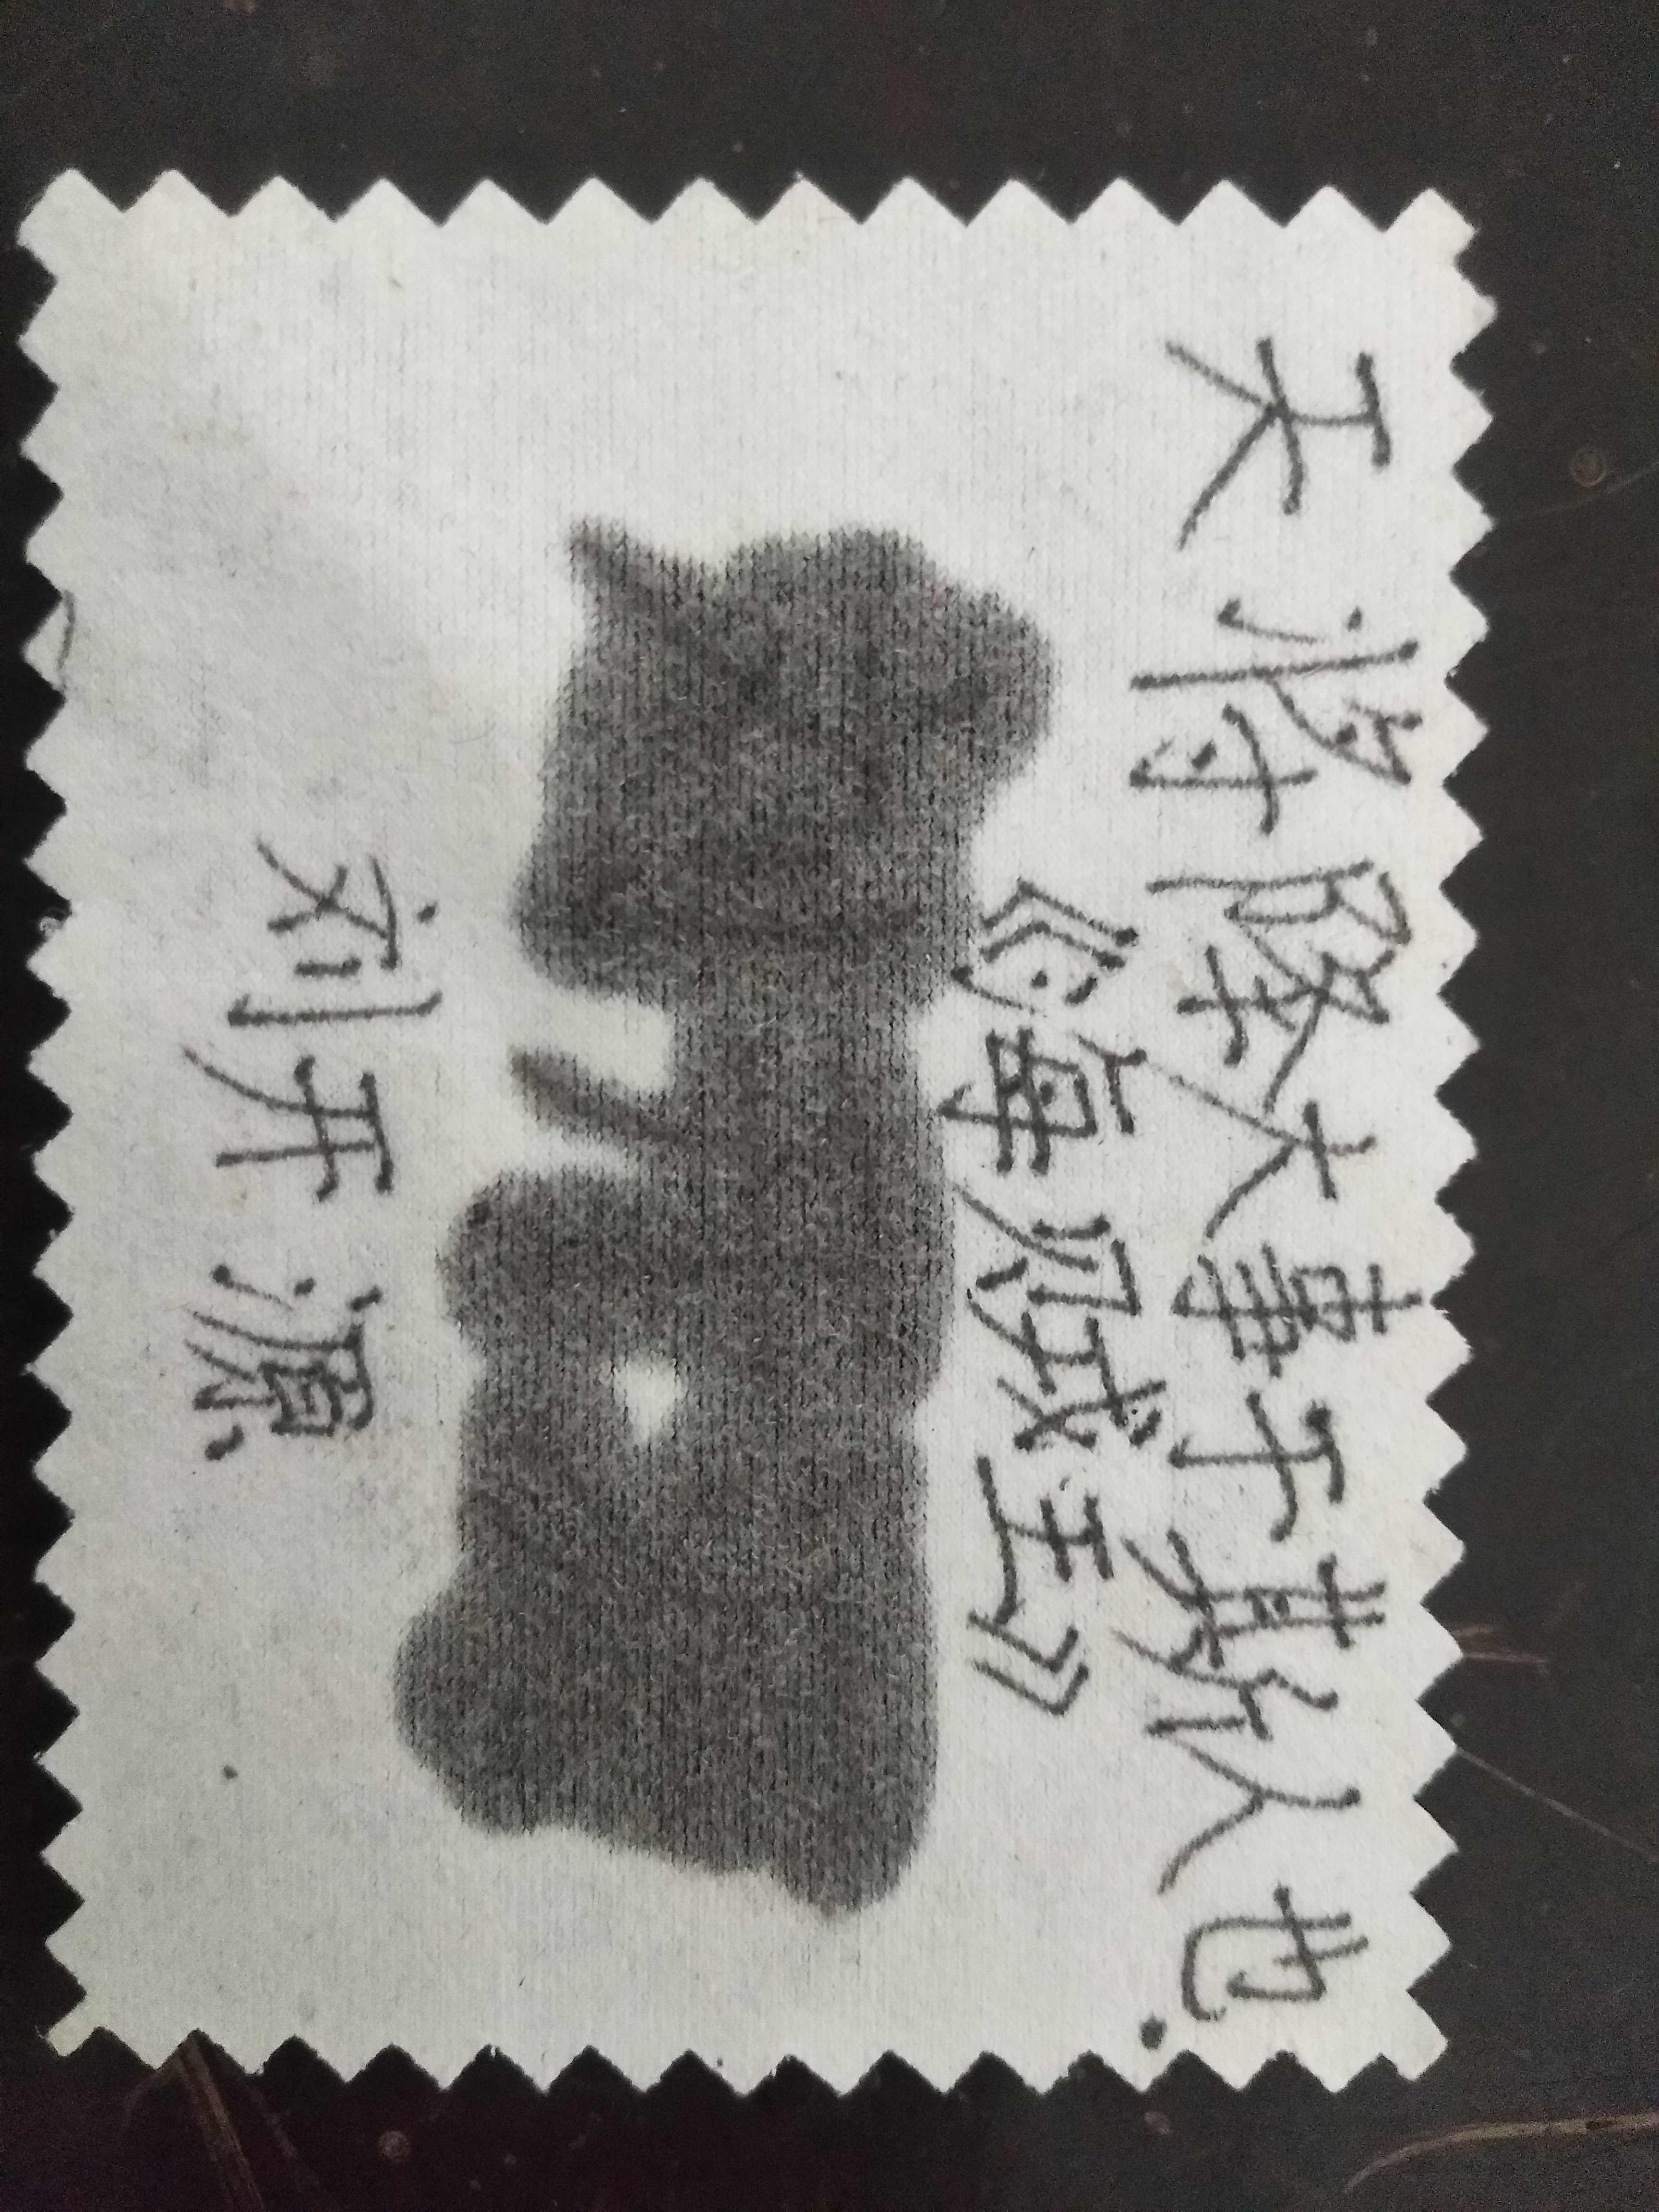 天将降大事于斯人也.
《海贼王》
刘开源